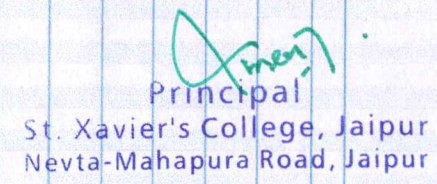 Principal
St. Xavier's College, Jaipur
Nevta-Mahapura Road, Jaipur